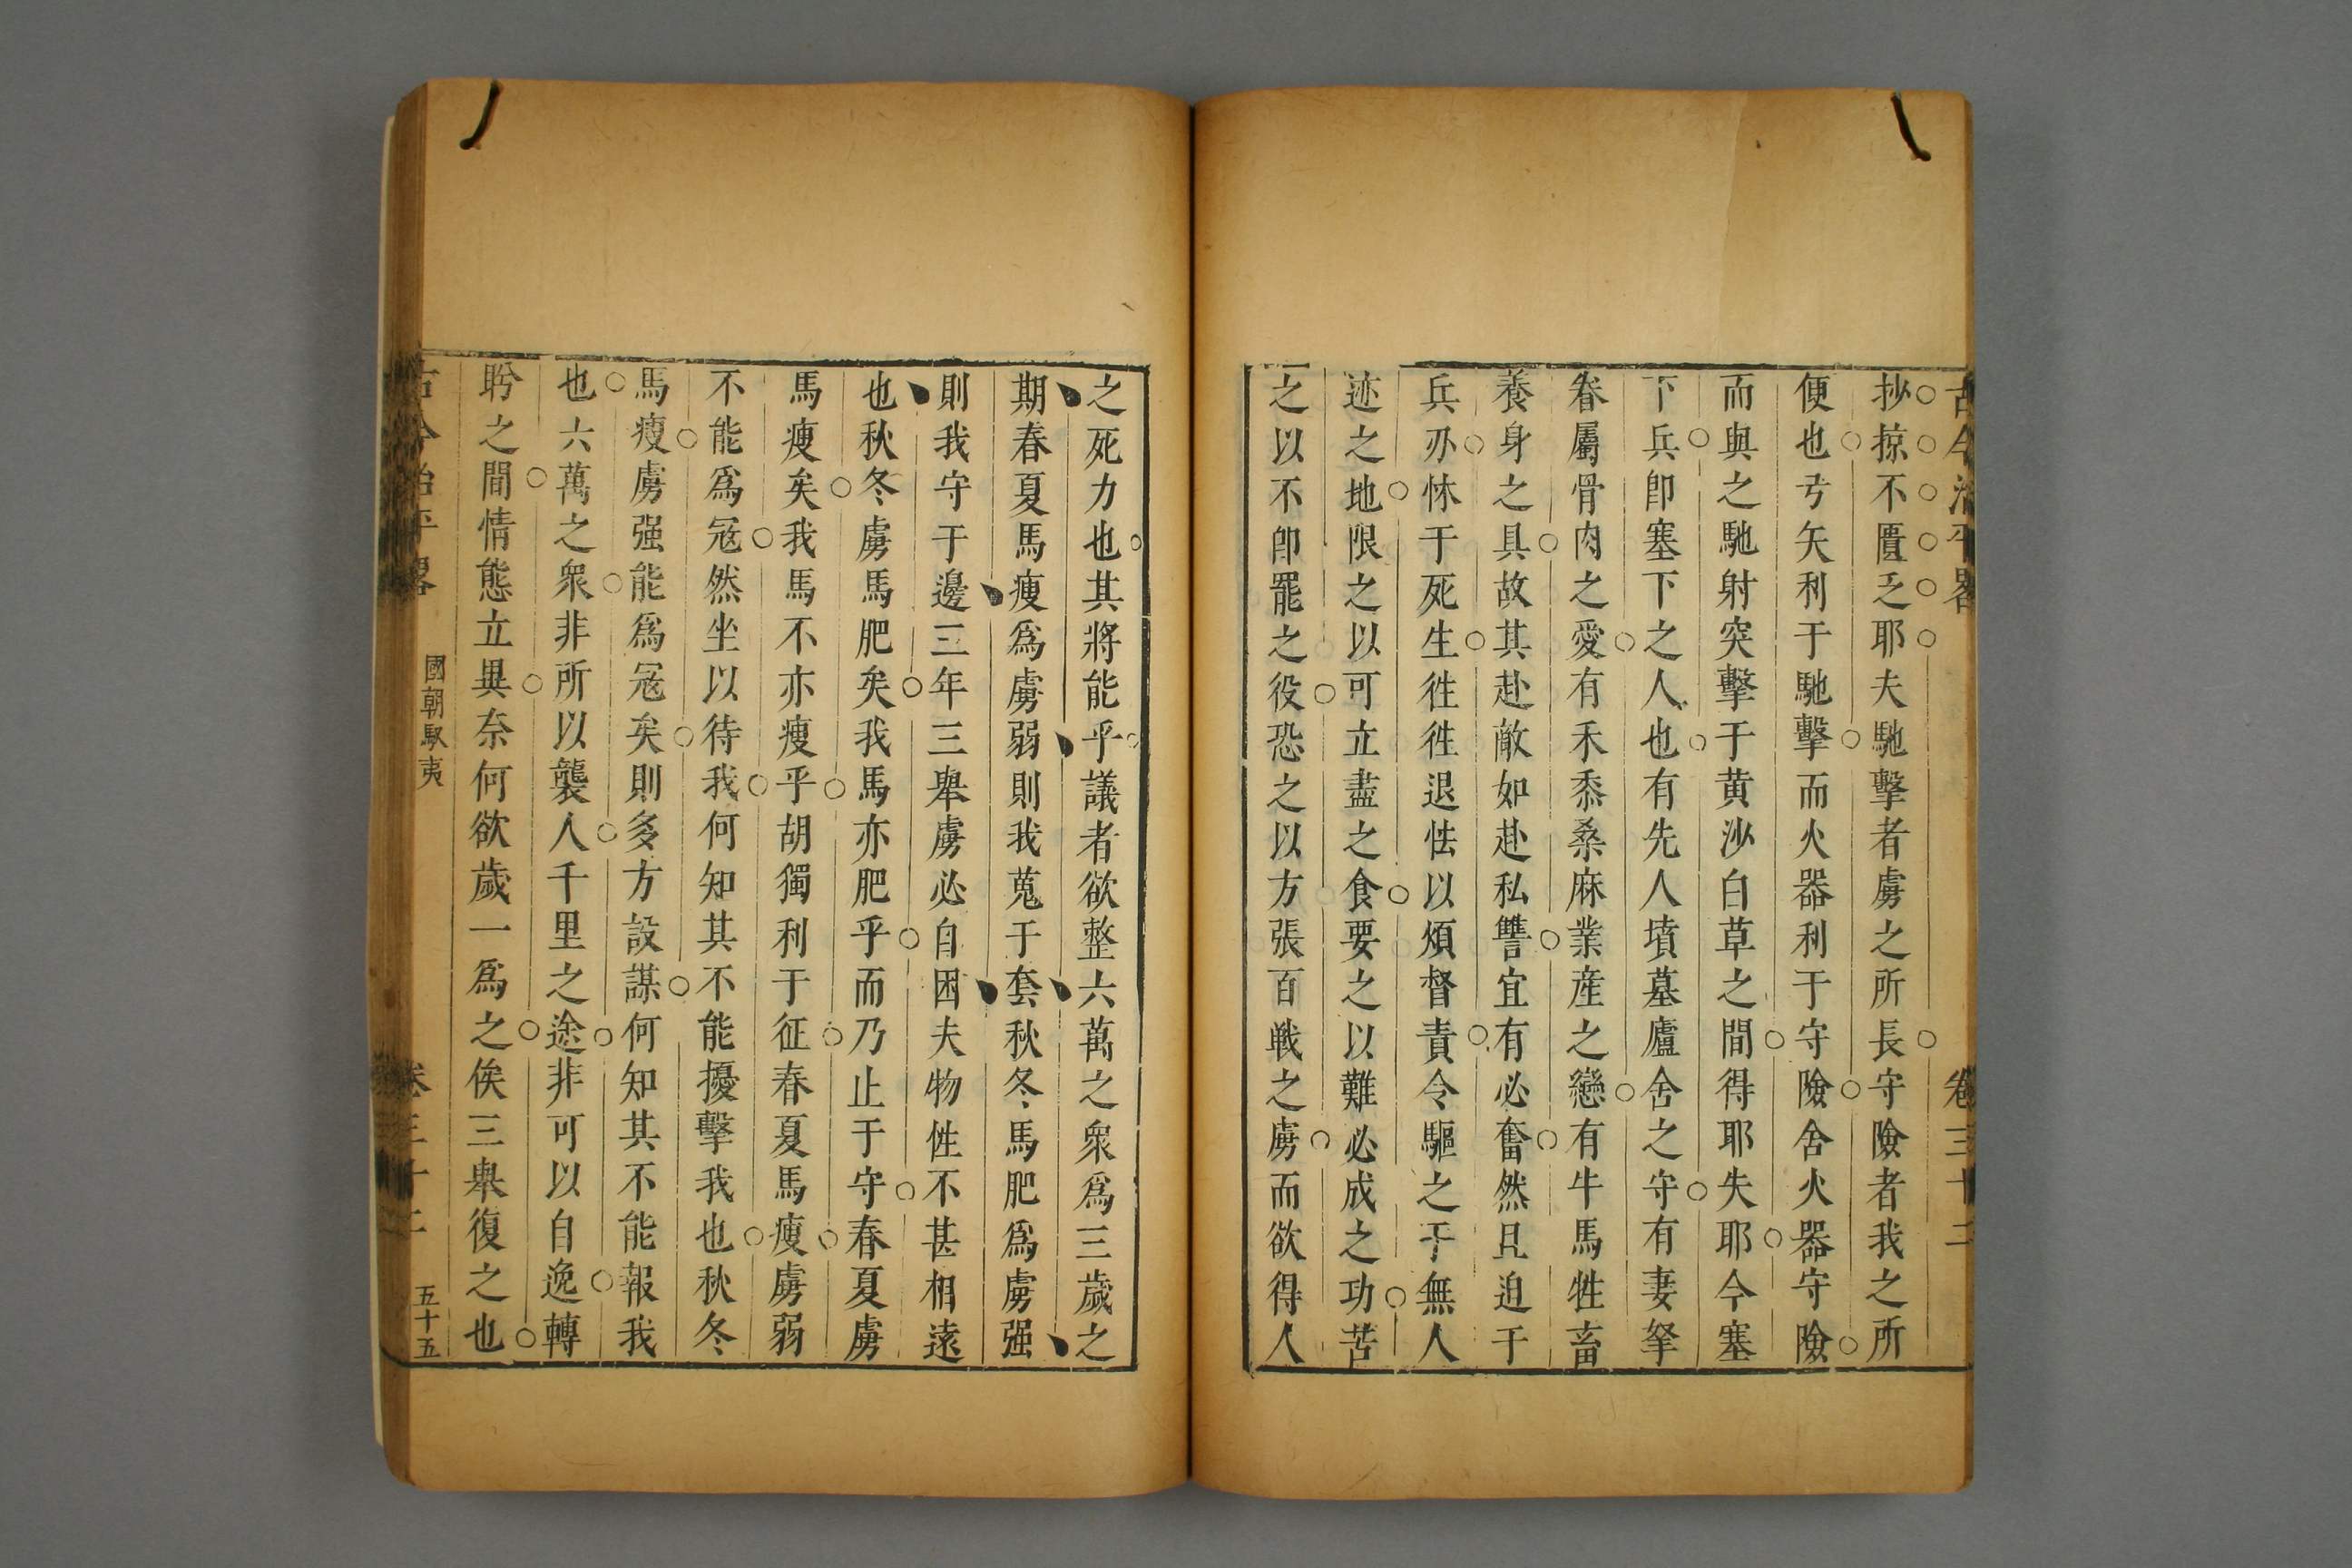 古今治平畧 卷三十二
抄掠不匱乏耶夫馳擊者虜之所長守險者我之所
便也弓矢利于馳擊而火器利于守險舍火器守險
而與之馳射突擊于黄沙白草之間得耶失耶今塞
下兵卽塞下之人也有先人墳墓廬舍之守有妻孥
眷屬骨肉之愛有禾黍桑麻業産之戀有牛馬牲畜
養身之具故其赴敵如赴私讐宜有必奮然且迫于
兵刅怵于死生徃徃退怯以煩督責令驅之于無人
迹之地限之以可立盡之食要之以難必成之功苦
之以不卽罷之役恐之以方張百戦之虜而欲得人
之死力也其將能乎議者欲整六萬之衆爲三歲之
期春夏馬瘦爲虜弱則我蒐于套秋冬馬肥爲虜强
則我守于邊三年三舉虜必自困夫物性不甚相遠
也秋冬虜馬肥矣我馬亦肥乎而乃止于守春夏虜
馬瘦矣我馬不亦瘦乎胡獨利于征春夏馬瘦虜弱
不能爲冦然坐以待我何知其不能擾擊我也秋冬
馬瘦虜强能爲冦矣則多方設謀何知其不能報我
也六萬之衆非所以襲人千里之途非可以自逸轉
盻之間情態立異奈何欲歲一爲之俟三舉復之也
古今治平畧 國朝馭夷 卷三十二 五十五